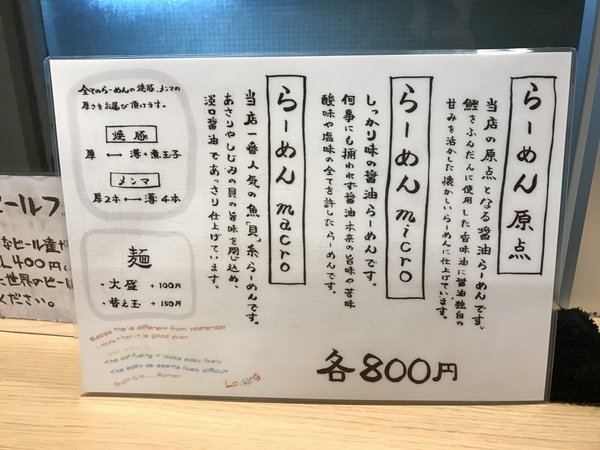 らーめん 原点
当店の原点となる醤油らーめんです。
鰹をふんだんに使用した香味油に醤油独自の
甘みを活かした懐かしいらーめんに仕上げています。
らーめん micro
しっかり味の醤油らーめんです。
何事にも捕われず醤油本来の旨味や苦味
酸味や塩味の全てを許したらーめんです。
らーめん macro
当店一番人気の魚「貝」系らーめんです。
あさりやしじみの貝の旨味を閉じ込め、
淡口醤油であっさり仕上げています。
各800円
全てのらーめんの焼豚、メンマの
厚さをお選び頂けます。
焼豚
厚 ⟷ 薄+煮玉子
メンマ
厚2本 ⟷ 薄4本
麺
・大盛 +100円
・替え玉 +150円
Recipe the is different from yesterday
The confusing it looks easy likely
The easy as seems likely difficult
Such is.....Ramen
Looking
ールフ
なビール産が
L400円。
た世界のビー
ください。